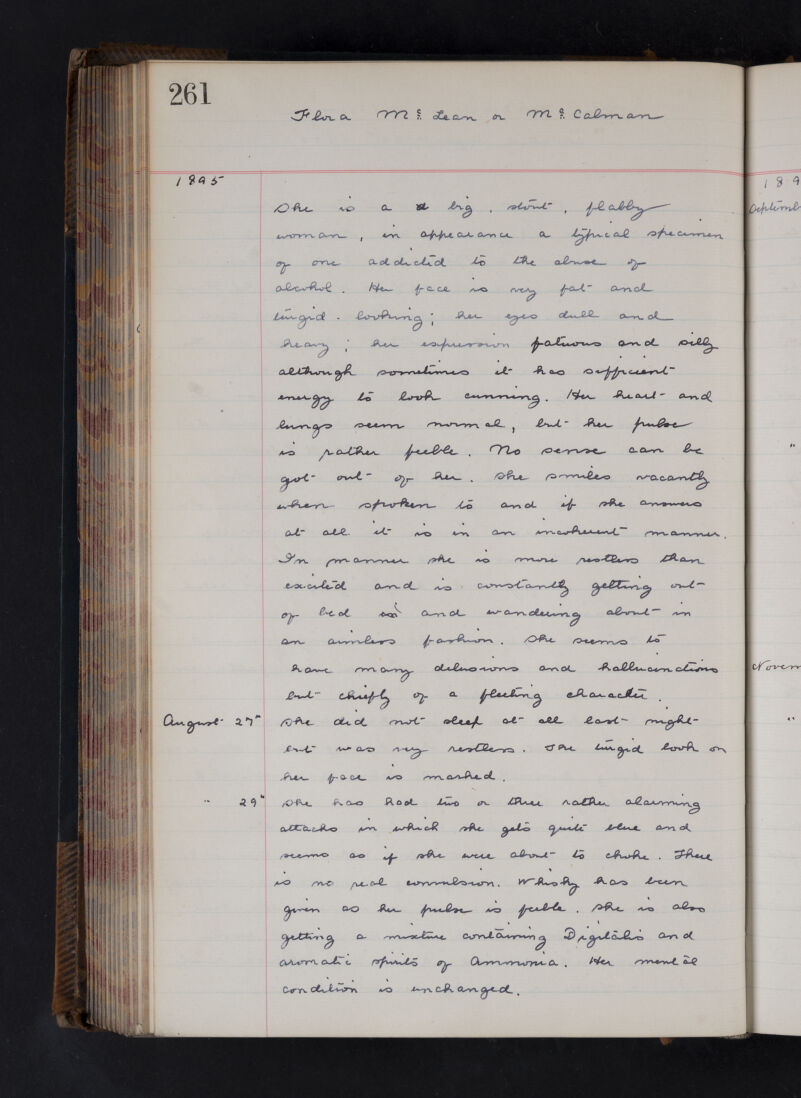 261
Flora McLean or McCalman
1895
She is a big, stout, flabby
woman, in appearance a typical specimen
of one addicted to the abuse of
alcohol. Her face is very fat and
turgid-looking; her eyes dull and
heavy; her expression fatuous and silly
although sometimes it has sufficient
energy to look cunning. Her heart and
lungs seem normal, but her pulse
is rather feeble. No sense can be
got out of her. She smiles vacantly
when spoken to and if she answers
at all it is in an incoherent manner.
In manner she is more restless than
excited and is constantly getting out
of bed and wandering about in
an aimless fashion. She seems to
have many delusions and hallucinations
but chiefly of a fleeting character.
August 27" She did not sleep at all last night
but was very restless. The turgid look on
her face is marked.
" 29" She has had two or three rather alarming
attacks in which she gets quite blue and
seems as if she were about to choke. There
is no real convulsion. Whisky has been
given as her pulse is feeble. She is also
getting a mixture containing Digitalis and
aromatic spirits of Ammonia. Her mental
condition is unchanged.
189
Septemb
"
Novem
"